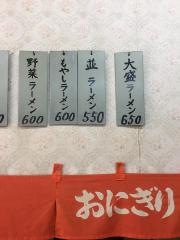 野菜ラーメン
600
もやしラーメン
600
並ラーメン
550
大盛ラーメン
650
おにぎり